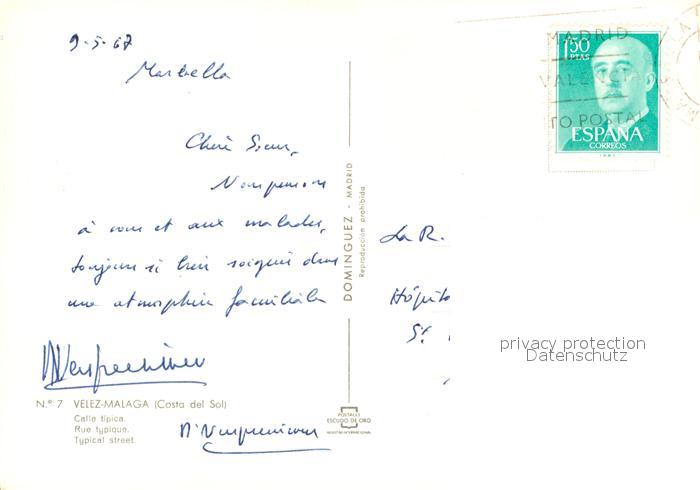 9-5-67
Marbella
Chère Sœur,
Nous pensons
à vous et aux malades,
toujours si bien soignés dans
une atmosphère familiale
N.º 7 VELEZ-MALAGA (Costa del Sol)
Calle típica.
Rue typique.
Typical street.
DOMINGUEZ - MADRID
Reproducción prohibida
POSTALES
ESCUDO DE ORO
REGISTRO INTERNACIONAL
1,50
PTAS
ESPAÑA
CORREOS
MADRID
TO POSTAL
La R.
Hôpita
St
privacy protection
Datenschutz